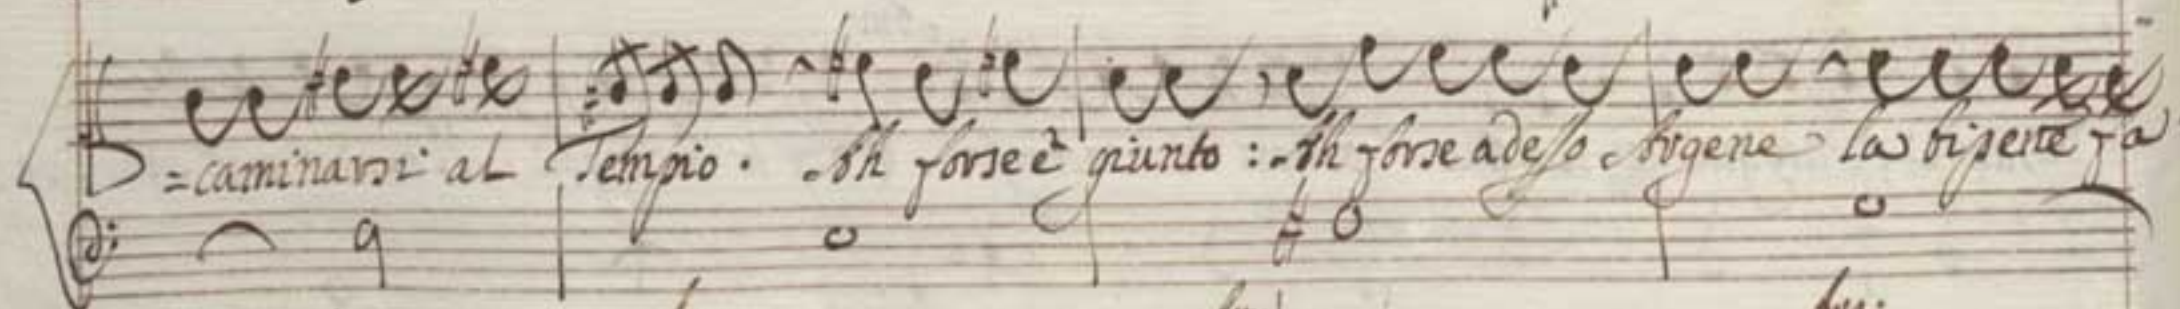 =caminarsi al Tempio. Ah forse è giunto: Ah forse adesso Argene la bipene fa